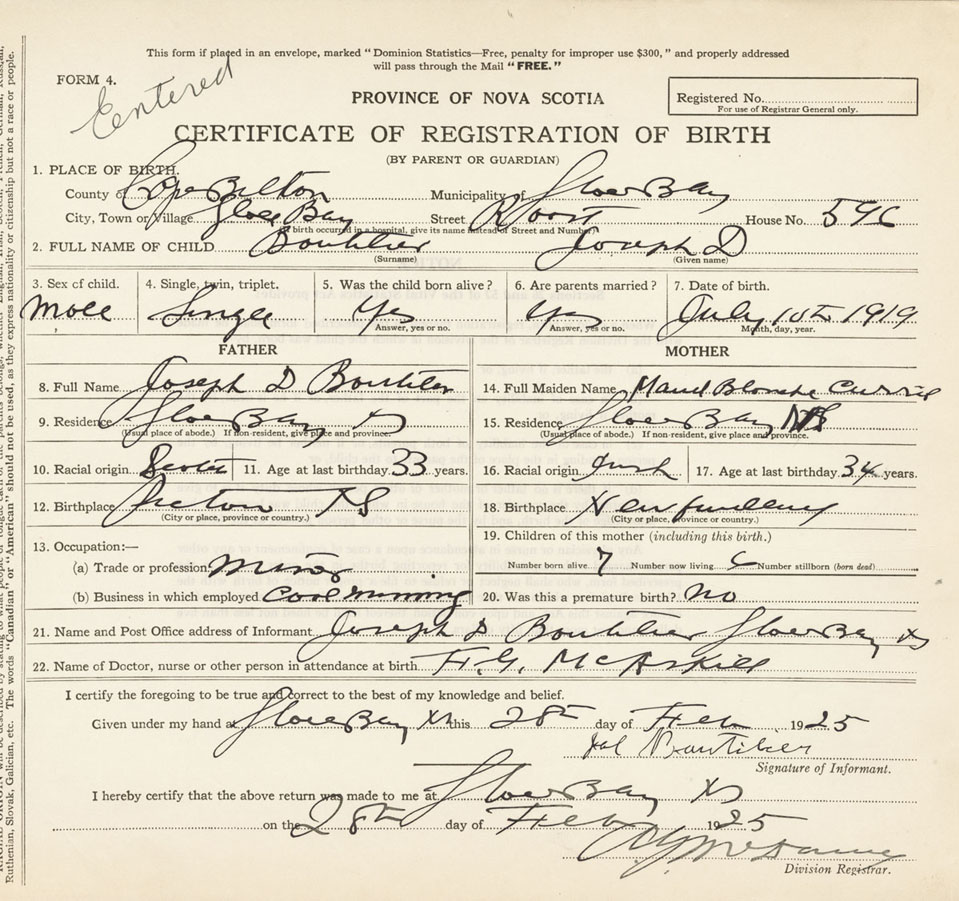 This form if placed in an envelope, marked "Dominion Statistics—Free, penalty for improper use $300," and properly addressed
will pass through the Mail "FREE."
FORM 4.
Entered
PROVINCE OF NOVA SCOTIA
Registered No.
For use of Registrar General only.
CERTIFICATE OF REGISTRATION OF BIRTH
(BY PARENT OR GUARDIAN)
1. PLACE OF BIRTH.
County of Cape Bilton Municipality of Glace Bay
City, Town or Village Glace Bay Street House No. 596
If birth occurred in a hospital, give its name instead of Street and Number
2. FULL NAME OF CHILD Boutilier Joseph D
(Surname) (Given name)
3. Sex of child. 4. Single, twin, triplet. 5. Was the child born alive? 6. Are parents married? 7. Date of birth.
Male Single Yes Yes July 10th 1919
Answer, yes or no. Answer, yes or no. Month, day, year.
FATHER MOTHER
8. Full Name Joseph D Boutilier 14. Full Maiden Name Maud Blanche Currie
9. Residence Glace Bay NS 15. Residence Glace Bay NS
(Usual place of abode.) If non-resident, give place and province. (Usual place of abode.) If non-resident, give place and province.
10. Racial origin 11. Age at last birthday 33 years. 16. Racial origin Irish 17. Age at last birthday 34 years.
12. Birthplace Pictou NS 18. Birthplace
(City or place, province or country.) (City or place, province or country.)
13. Occupation:— 19. Children of this mother (including this birth.)
(a) Trade or profession Number born alive 7 Number now living 6 Number stillborn (born dead)
(b) Business in which employed Coal mining 20. Was this a premature birth? No
21. Name and Post Office address of Informant Joseph D Boutilier Glace Bay NS
22. Name of Doctor, nurse or other person in attendance at birth H. G. McAskill
I certify the foregoing to be true and correct to the best of my knowledge and belief.
Given under my hand at Glace Bay NS this 28th day of Feb 1925
Boutilier
Signature of Informant.
I hereby certify that the above return was made to me at Glace Bay NS
on the 28th day of Feb 1925
Division Registrar.